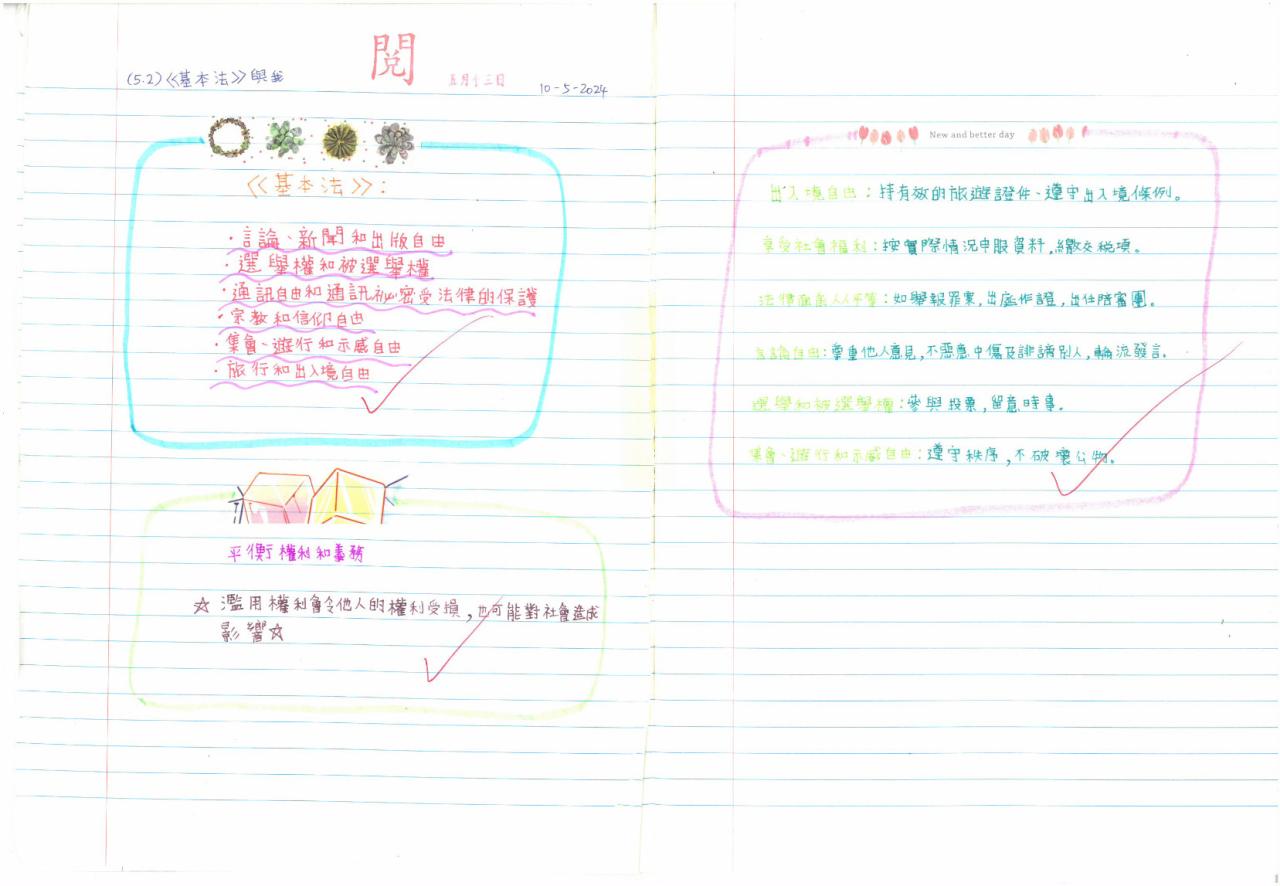 (5.2)《基本法》與我
閱
五月十三日
10-5-2024
《基本法》:
·言論、新聞和出版自由
·選舉權和被選舉權
·通訊自由和通訊祕密受法律的保護
·宗教和信仰自由
·集會、遊行和示威自由
·旅行和出入境自由
平衡權利和義務
☆濫用權利會令他人的權利受損,也可能對社會造成
影響☆
New and better day
出入境自由:持有效的旅遊證件、遵守出入境條例。
享受社會福利:按實際情況申報資料,繳交稅項。
法律面前人人平等:如舉報罪案,出庭作證,出任陪審團。
言論自由:尊重他人意見,不惡意中傷及誹謗別人,輪流發言。
選舉和被選舉權:參與投票,留意時事。
集會、遊行和示威自由:遵守秩序,不破壞公物。